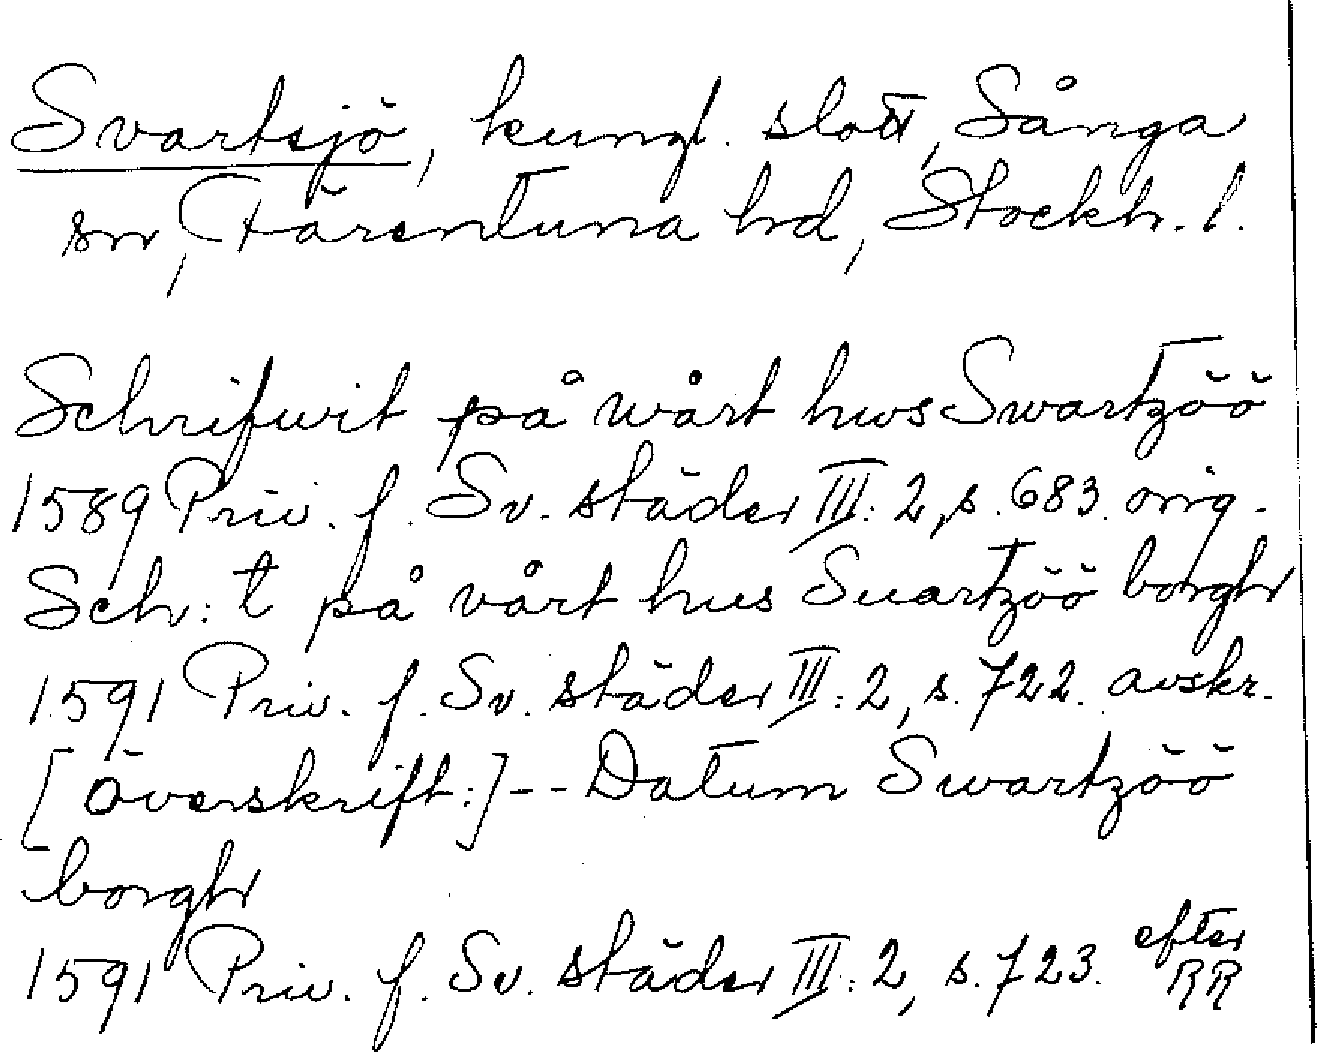 Svartsjö, kungl. slott, Sånga
sn, Färentuna hd, Stockh. l.
Schrifwit på wårt hws Swartzöö
1589 Priv. f. Sv. städer III:2, s. 683. orig.
Sch:t på vårt hus Suartzöö borgh
1591 Priv. f. Sv. städer III:2, s. 722. avskr.
[Överskrift:] -- Datum Swartzöö
borgh
1591 Priv. f. Sv. städer III:2, s. 723. efter RR